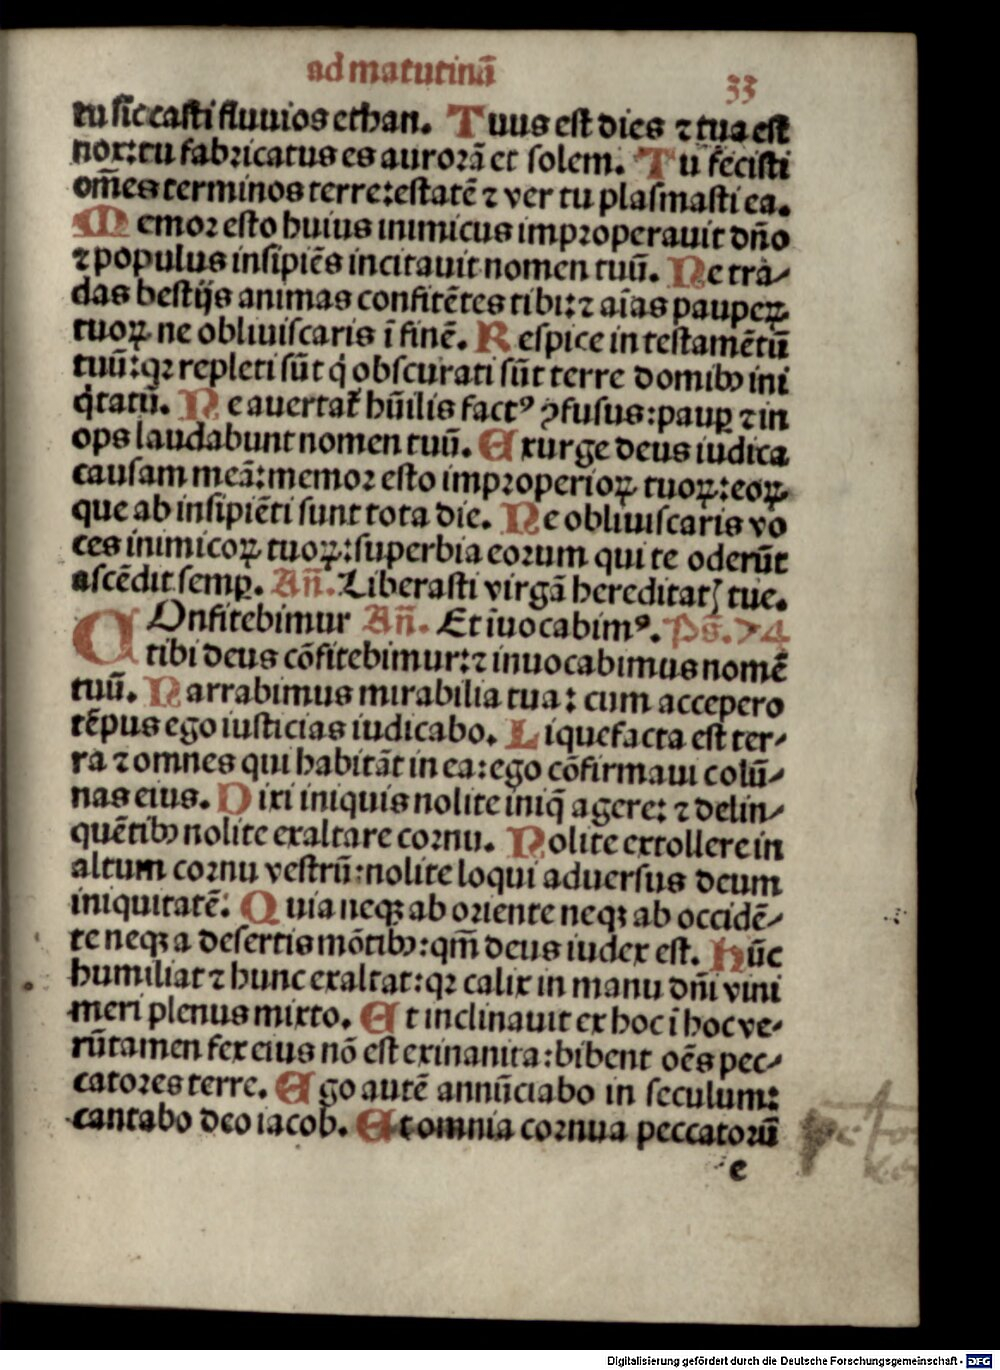 ad matutinā
33
tu siccasti fluuios ethan. Tuus est dies ⁊ tua est
nox: tu fabricatus es aurorā et solem. Tu fecisti
om̄es terminos terre: estatē ⁊ ver tu plasmasti ea.
Memor esto huius inimicus improperauit dn̄o
⁊ populus insipiēs incitauit nomen tuū. Ne tra-
das bestijs animas confitētes tibi: ⁊ aīas pauperꝝ
tuoꝝ ne obliuiscaris ī finē. Respice in testamētū
tuū: qꝛ repleti sūt q̇ obscurati sūt terre domibꝰ ini
q̇tatū. Ne auertat̄ hūilis factꝰ ꝯfusus: paup̄ ⁊ in
ops laudabunt nomen tuū. Exurge deus iudica
causam meā: memor esto improperioꝝ tuoꝝ: eoꝝ
que ab insipiēti sunt tota die. Ne obliuiscaris vo
ces inimicoꝝ tuoꝝ: superbia eorum qui te oderūt
ascēdit semꝑ. An̄. Liberasti virgā hereditatꝭ tue.
COnfitebimur An̄. Et iuocabimꝰ. Ps̄. 74
tibi deus cōfitebimur: ⁊ inuocabimus nomē
tuū. Narrabimus mirabilia tua: cum accepero
tēpus ego iusticias iudicabo. Liquefacta est ter-
ra ⁊ omnes qui habitāt in ea: ego cōfirmaui colū-
nas eius. Dixi iniquis nolite iniq̄ agere: ⁊ delin-
quētibꝰ nolite exaltare cornu. Nolite extollere in
altum cornu vestrū: nolite loqui aduersus deum
iniquitatē. Quia neqꝫ ab oriente neqꝫ ab occidē-
te neqꝫ a desertis mōtibꝰ: qm̄ deus iudex est. Hūc
humiliat ⁊ hunc exaltat: qꝛ calix in manu dn̄i vini
meri plenus mixto. Et inclinauit ex hoc ī hoc ve-
rūtamen fex eius nō est exinanita: bibent oēs pec-
catores terre. Ego autē annūciabo in seculum:
cantabo deo iacob. Et omnia cornua peccatorū
e
Digitalisierung gefördert durch die Deutsche Forschungsgemeinschaft - DFG